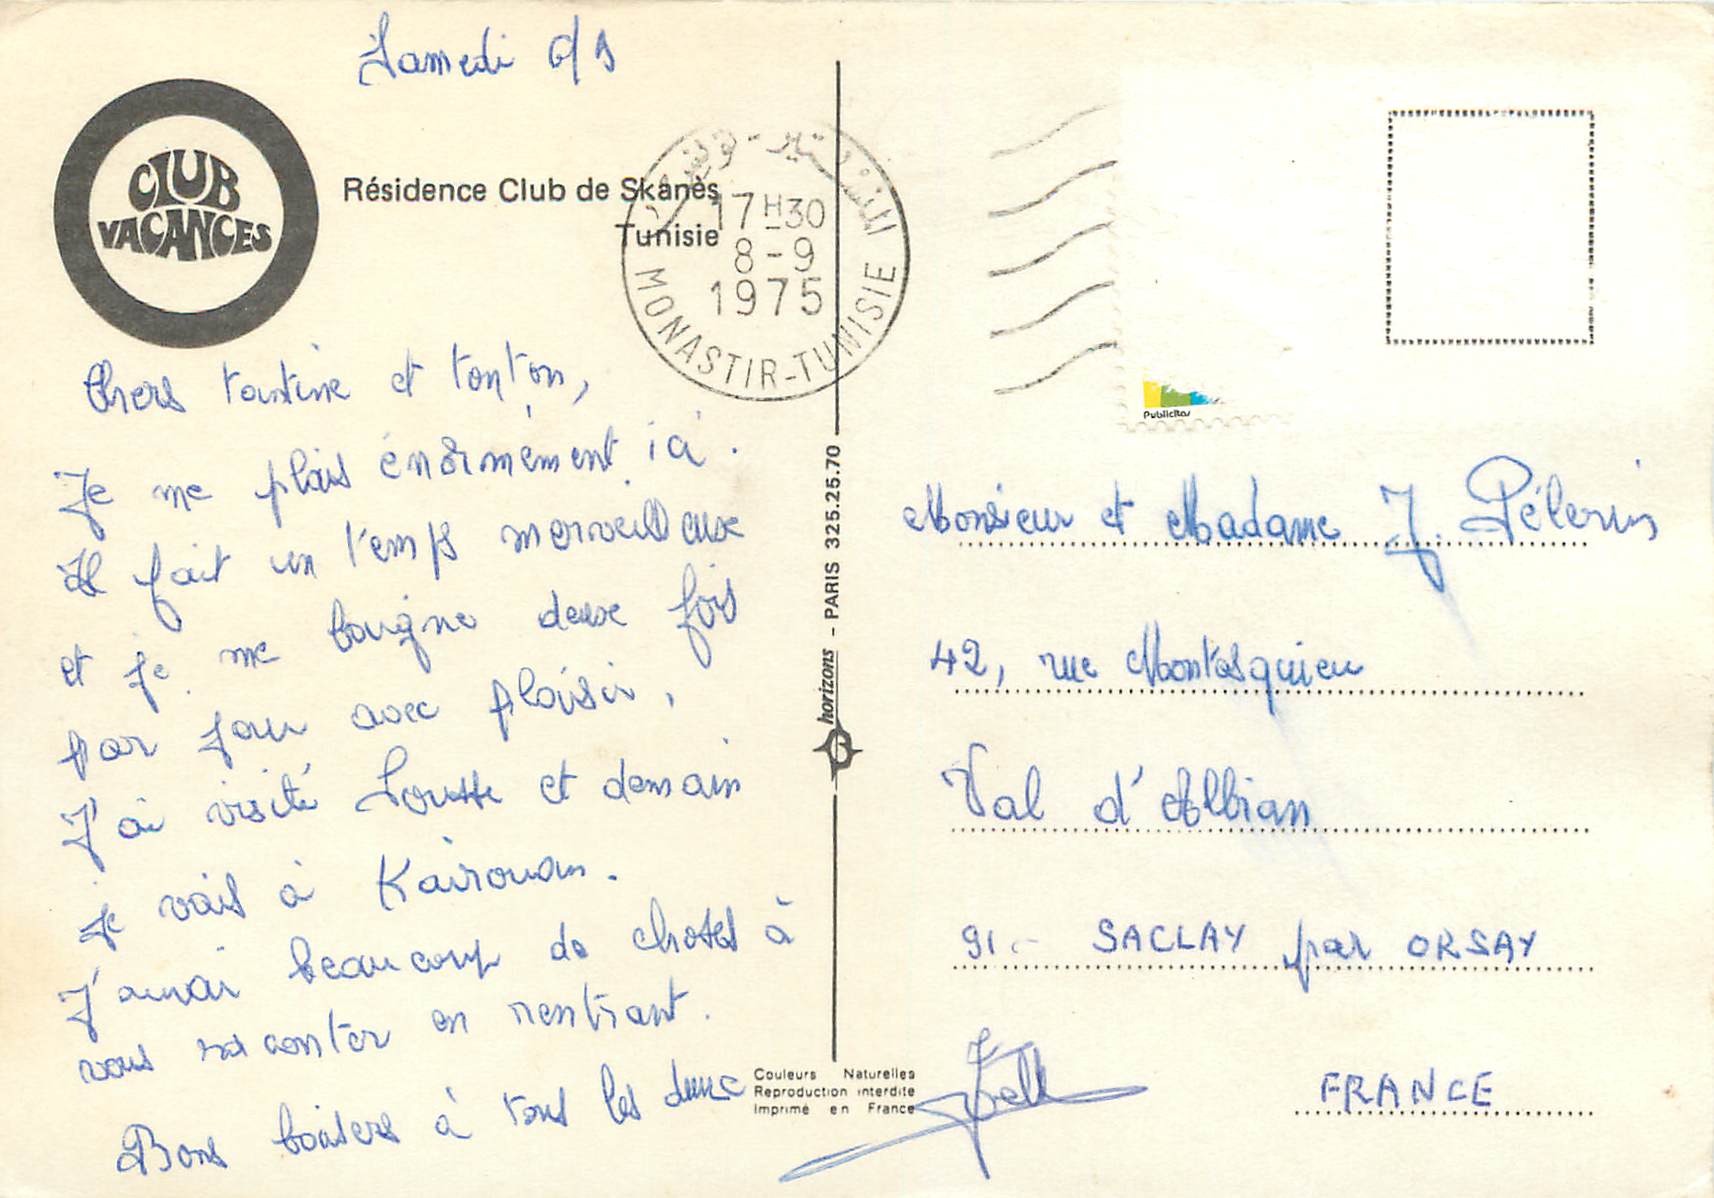 Samedi 6/9
CLUB
VACANCES
Résidence Club de Skanès
Tunisie
المنستير - تونس
17H30
8-9
1975
MONASTIR-TUNISIE
Chers tantine et tonton,
Je me plais énormément ici.
Il fait un temps merveilleux
et je me baigne deux fois
par jour avec plaisir.
J'ai visité Sousse et demain
je vais à Kairouan.
J'aurai beaucoup de choses à
vous raconter en rentrant.
Bons baisers à tous les deux
Joëlle
horizons - PARIS 325.25.70
Couleurs Naturelles
Reproduction interdite
Imprimé en France
Publicitas
Monsieur et Madame J. Pélerin
42, rue Montesquieu
Val d'Albian
91.- SACLAY par ORSAY
FRANCE